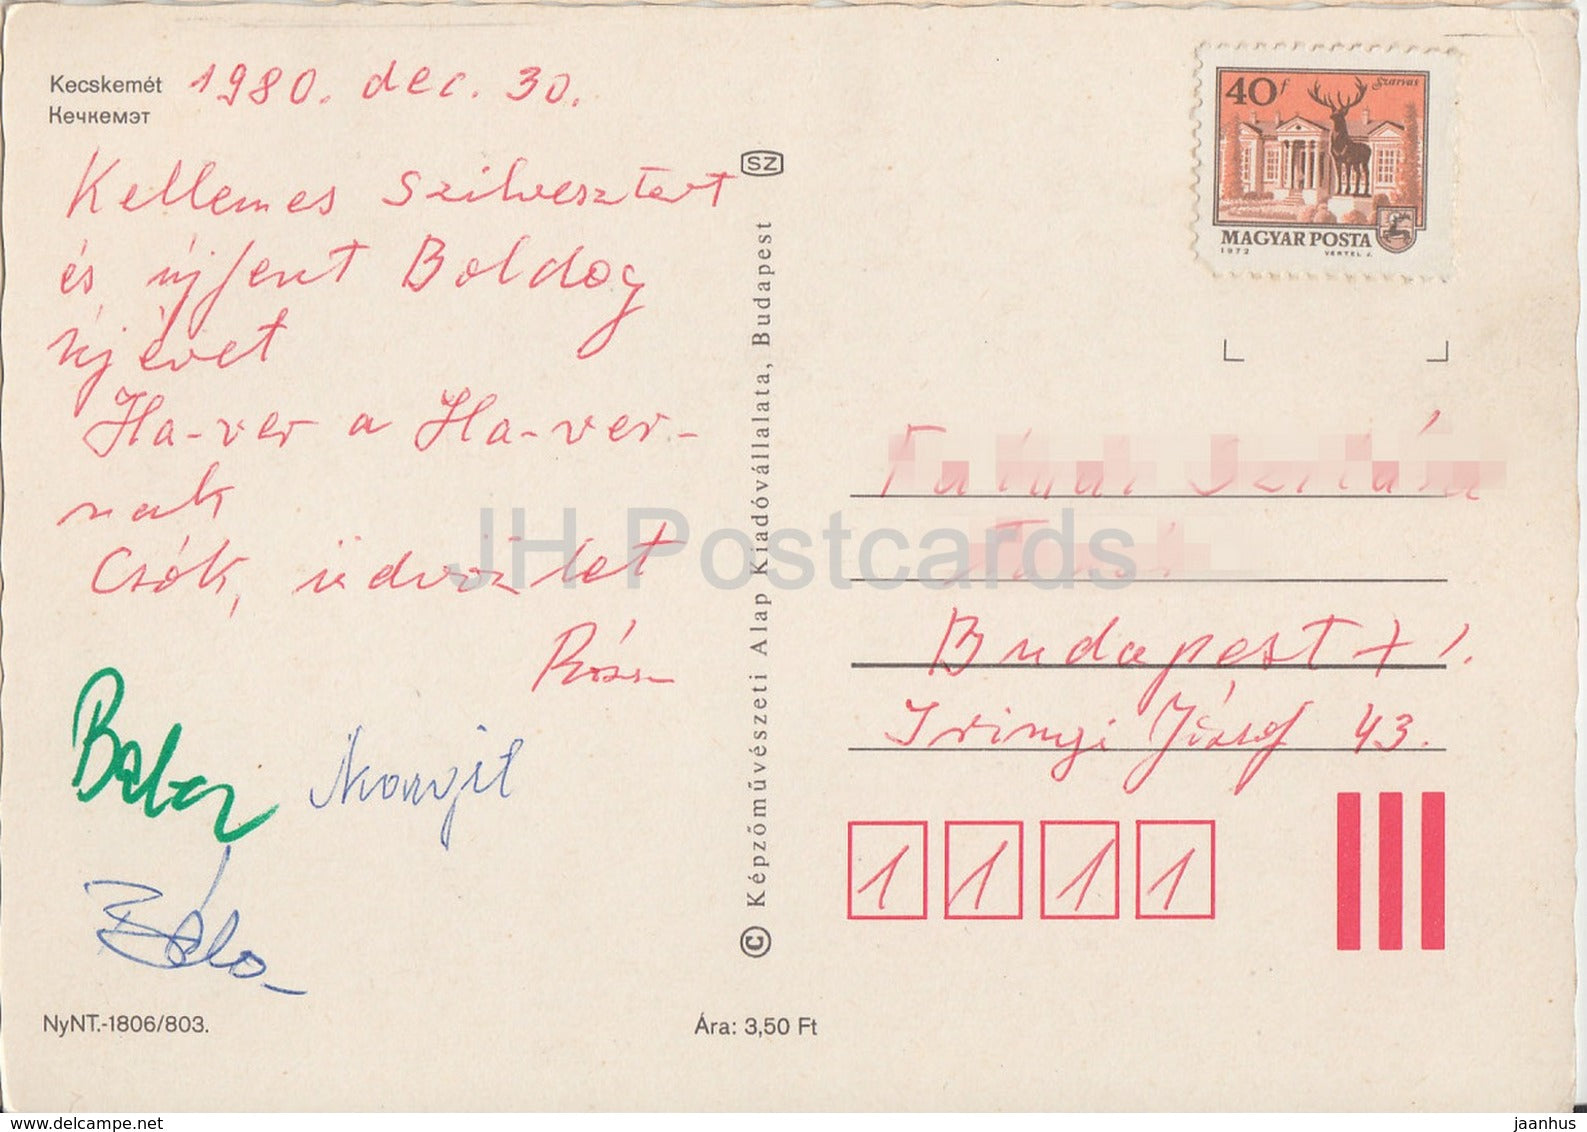 Kecskemét
Кечкемэт
1980. dec. 30.
Kellemes Szilvesztert
és újfent Boldog
újévet
Ha-ver a Ha-ver-
nak
Csók, üdvözlet
NyNT.-1806/803.
SZ
© Képzőművészeti Alap Kiadóvállalata, Budapest
Ára: 3,50 Ft
40f
Szarvas
MAGYAR POSTA
1972
VERTEL J.
Budapest
Irinyi József 43.
1 1 1 1
JH Postcards
www.delcampe.net
jaanhus